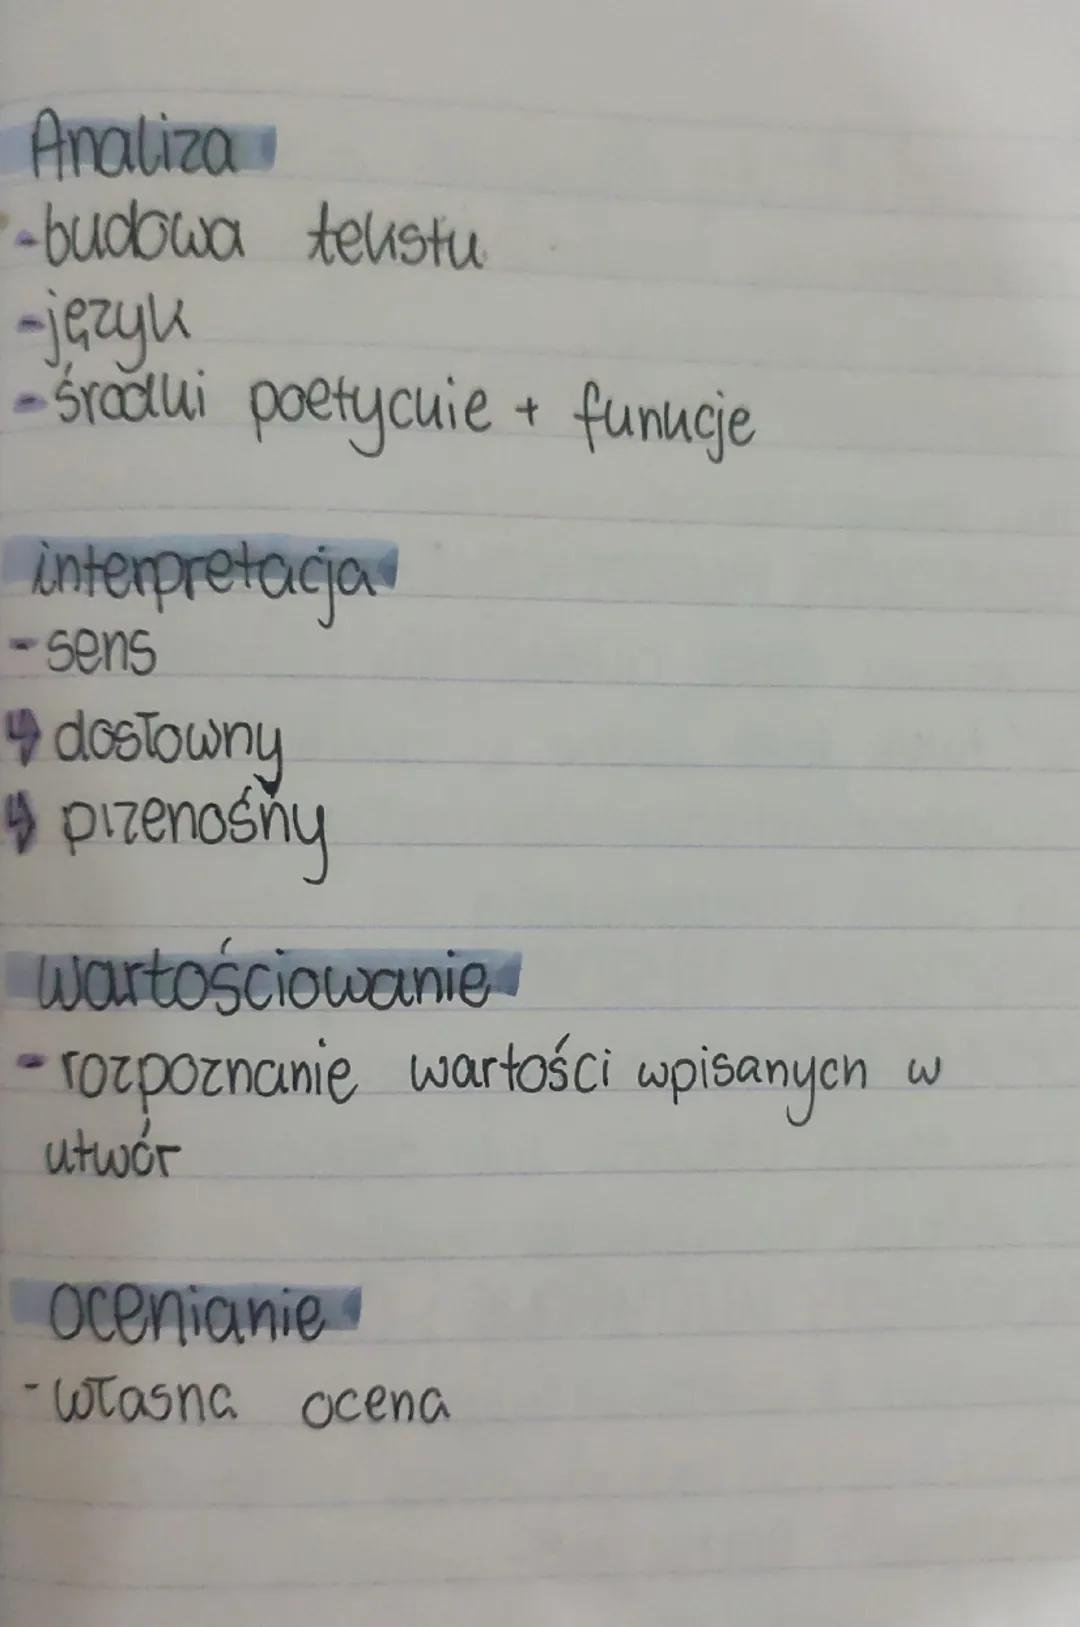 Analiza
-budowa tekstu
-język
-środki poetyckie + funkcje
interpretacja
-sens
↳ dosłowny
↳ przenośny
wartościowanie
-rozpoznanie wartości wpisanych w
utwór
ocenianie
-własna ocena